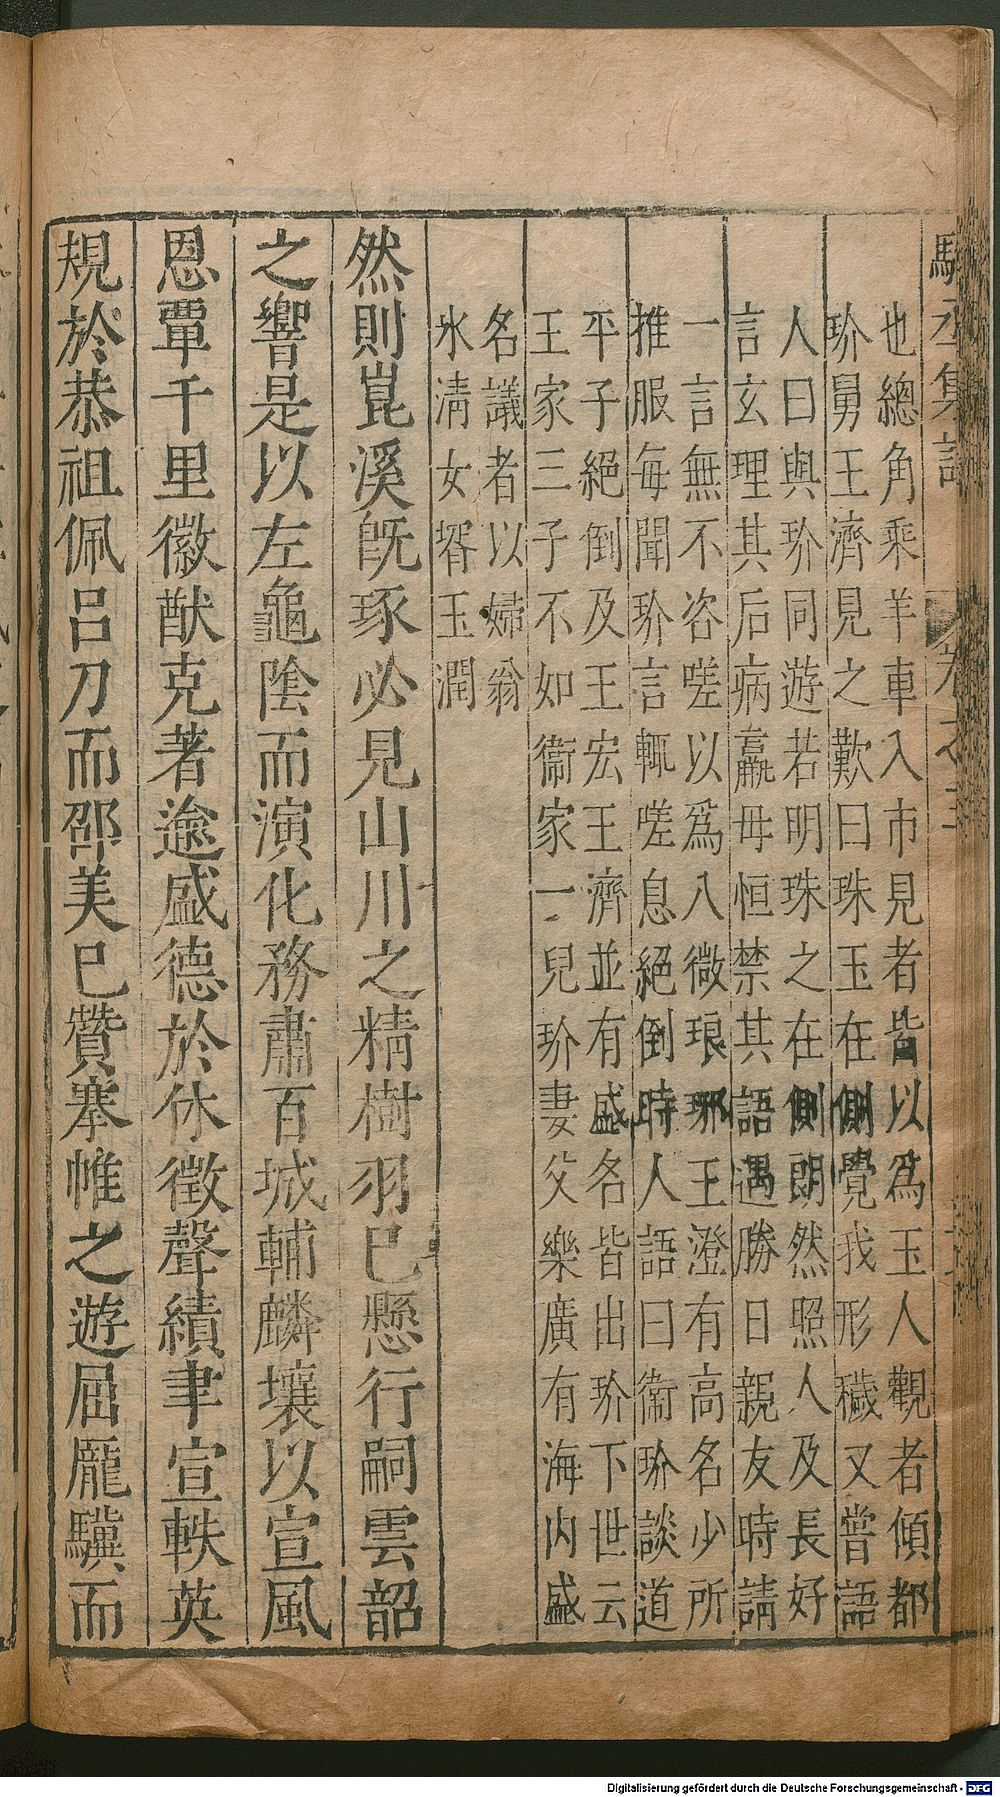 也總角乘羊車入市見者皆以爲玉人觀者傾都
玠舅王濟見之歎曰珠玉在側覺我形穢又嘗語
人曰與玠同遊若明珠之在側朗然照人及長好
言玄理其后病羸毋恒禁其語遇勝日親友時請
一言無不咨嗟以爲入微琅琊王澄有高名少所
推服每聞玠言輒嗟息絕倒時人語曰衞玠談道
平子絕倒及王宏王濟並有盛名皆出玠下世云
王家三子不如衞家一兒玠妻父樂廣有海内盛
名議者以婦翁
氷淸女壻玉潤
然則崑溪旣琢必見山川之精樹羽已懸行嗣雲韶
之響是以左龜陰而演化務肅百城輔麟壤以宣風
恩覃千里徽猷克著逾盛德於休徵聲績聿宣軼英
規於恭祖佩呂刀而邵美已贊搴帷之遊屈龐驥而
Digitalisierung gefördert durch die Deutsche Forschungsgemeinschaft - DFG